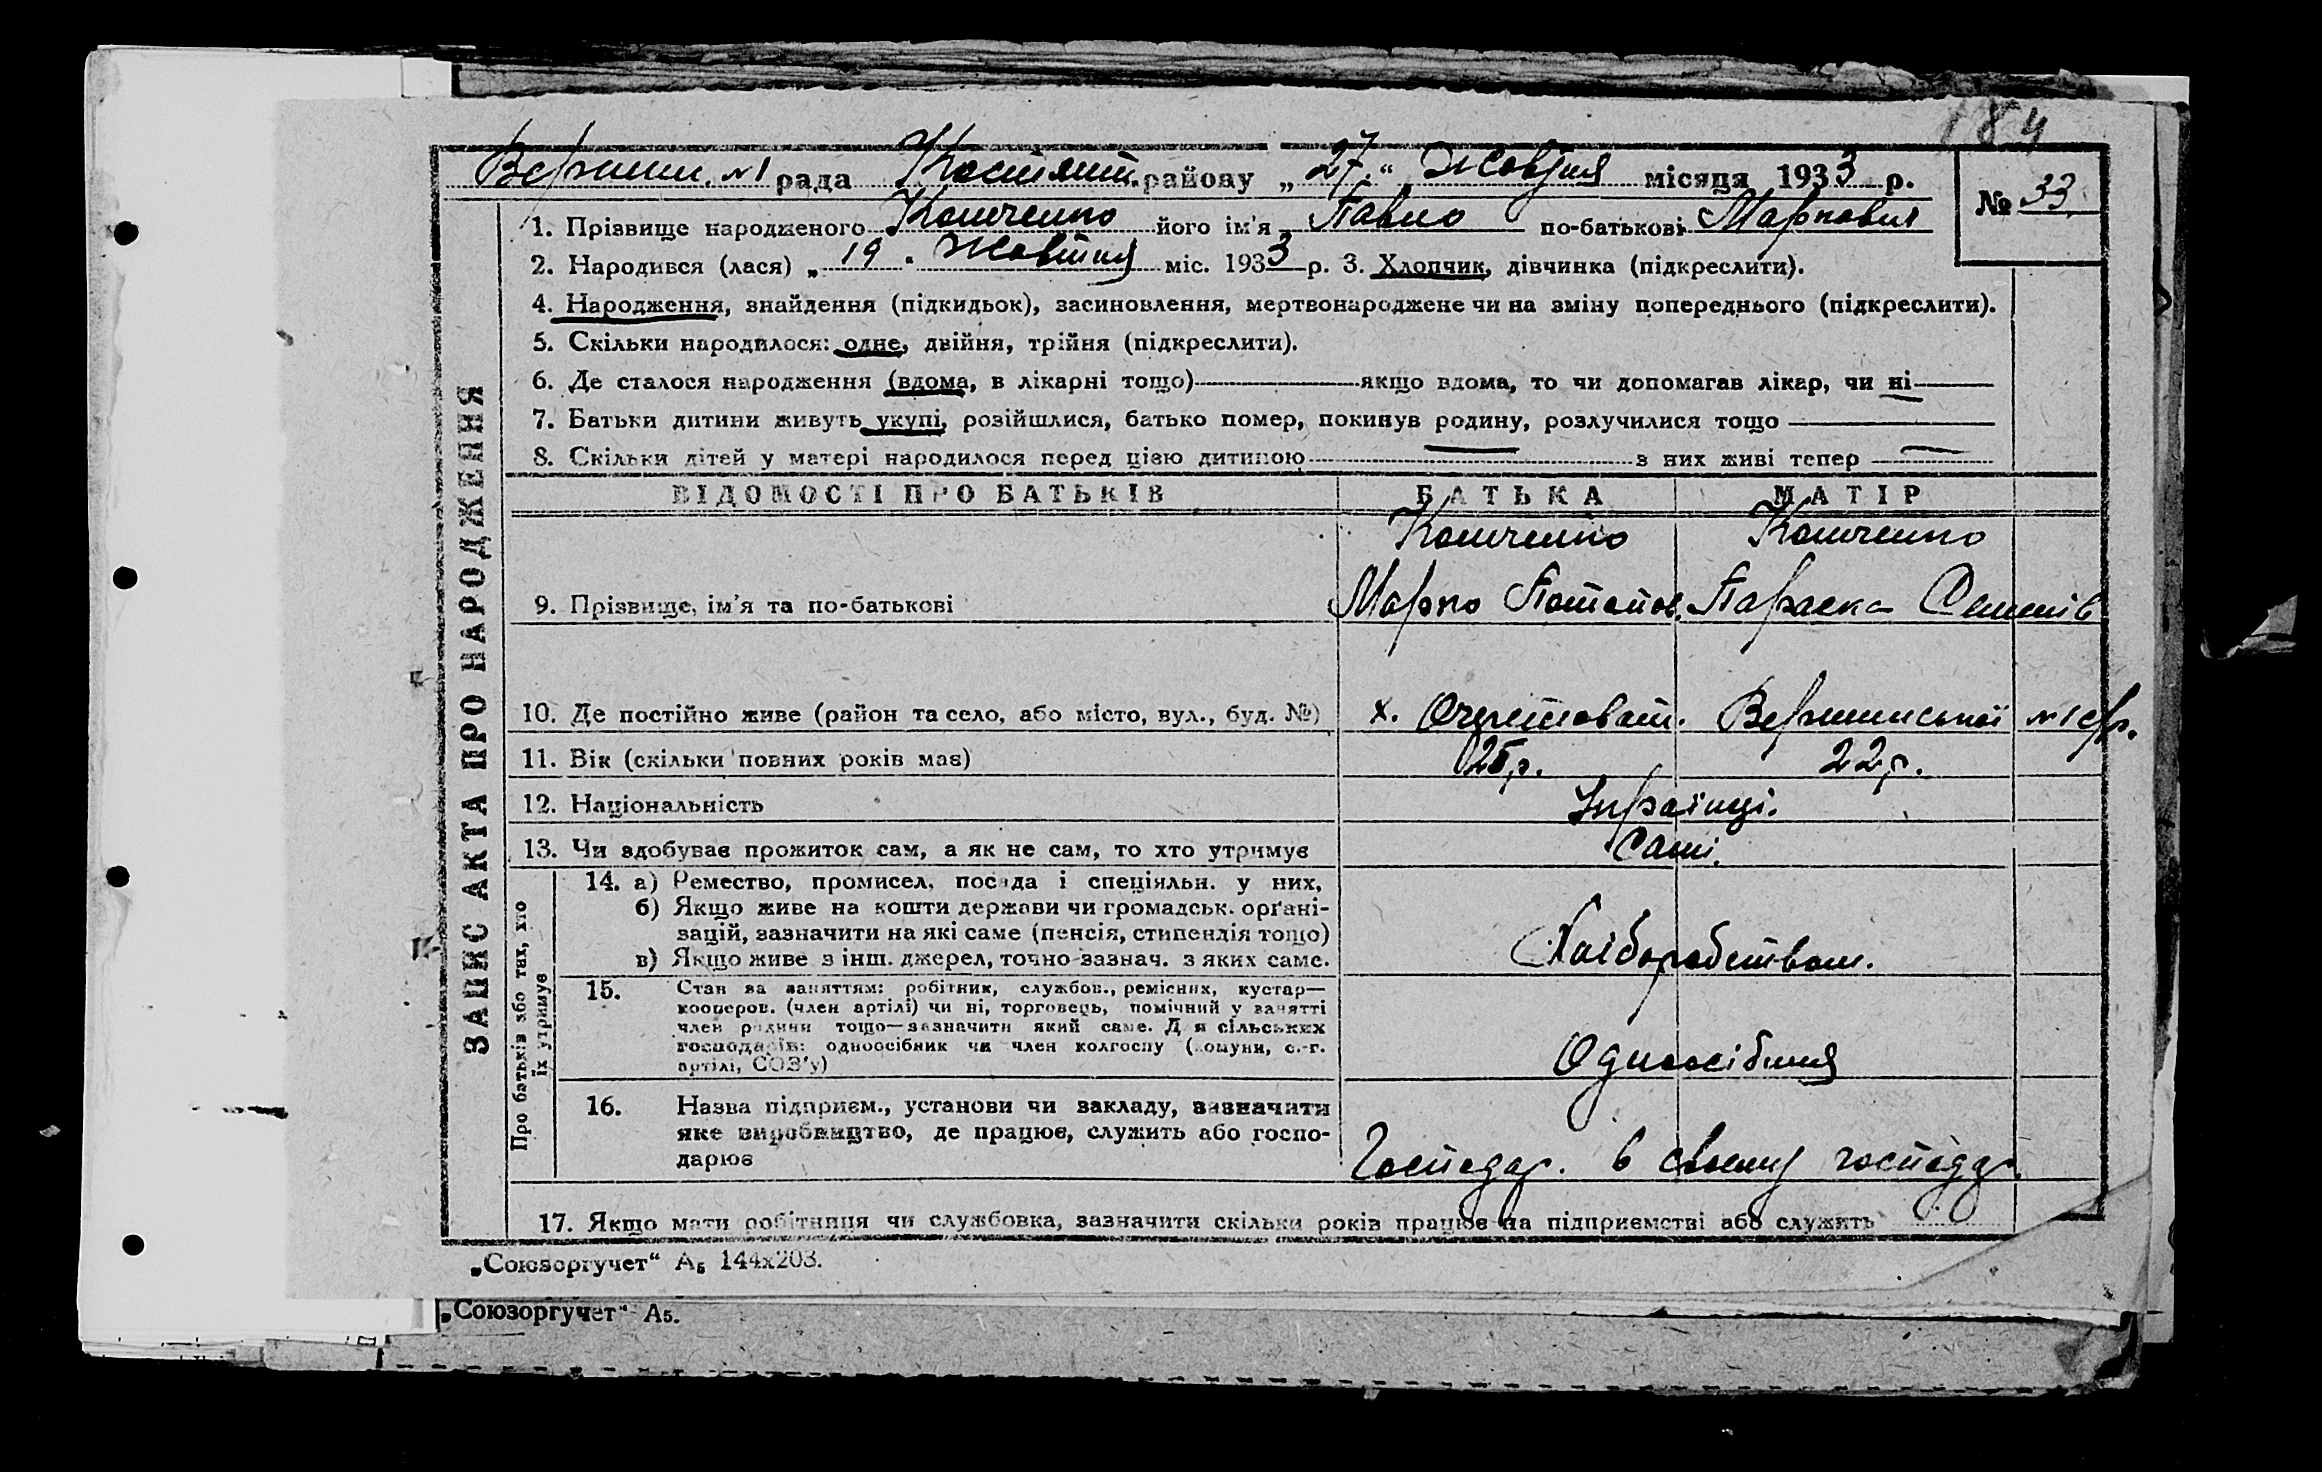 184
Вершин. №1 рада Костянт. району „27.“ Жовтня місяця 1933 р.
№ 33
1. Прізвище народженого Комченко його ім'я Павло по-батькові Маркович
2. Народився (лася) „ 19 . Жовтня міс. 1933 р. 3. Хлопчик, дівчинка (підкреслити).
4. Народження, знайдення (підкидьок), засиновлення, мертвонароджене чи на зміну попереднього (підкреслити).
5. Скільки народилося: одне, двійня, трійня (підкреслити).
6. Де сталося народження (вдома, в лікарні тощо) якщо вдома, то чи допомагав лікар, чи ні
7. Батьки дитини живуть укупі, розійшлися, батько помер, покинув родину, розлучилися тощо
8. Скільки дітей у матері народилося перед цією дитиною — з них живі тепер —
ВІДОМОСТІ ПРО БАТЬКІВ БАТЬКА МАТІР
Комченко Комченко
9. Прізвище, ім'я та по-батькові Марко Потапов. Параска Семенів
10. Де постійно живе (район та село, або місто, вул., буд. №) х. Очеретоват. Вершинської №1 с/р.
11. Вік (скільки повних років має) 25 р. 22 р.
12. Національність Українці.
13. Чи здобуває прожиток сам, а як не сам, то хто утримує Самі.
14. а) Ремество, промисел, посада і спеціяльн. у них,
б) Якщо живе на кошти держави чи громадськ. орґані-
зацій, зазначити на які саме (пенсія, стипендія тощо)
в) Якщо живе з інш. джерел, точно зазнач. з яких саме.
Хліборобством.
15. Стан за заняттям: робітник, службов., ремісник, кустар—
кооперов. (член артілі) чи ні, торговець, помічний у занятті
член родини тощо—зазначити який саме. Д я сільських
господарів: одноосібник чи член колгоспу (комуни, с.-г.
артілі, СОЗ'у)
Одноосібния
16. Назва підприєм., установи чи закладу, зазначити
яке виробництво, де працює, служить або госпо-
дарює
Господар. в своєму господар.
17. Якщо мати робітниця чи службовка, зазначити скільки років працює на підприємстві або служить
ЗАПИС АКТА ПРО НАРОДЖЕННЯ
Про батьків або тих, хто
їх утримує
„Союзоргучет“ А5 144х203.
„Союзоргучет“ А5.